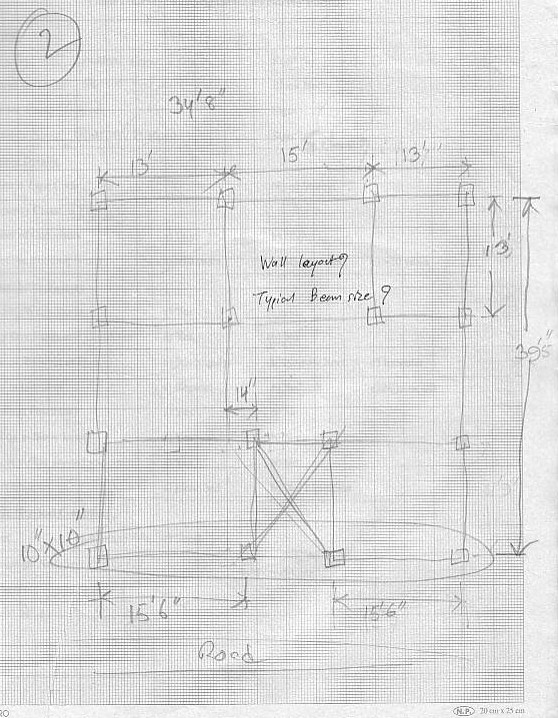 2
34'8"
13'
15'
13'
13'
Wall layout?
Typical Beam size?
39'5"
14"
10"X10"
15'6"
15'6"
Road
RO
N.P. 20 cm x 25 cm